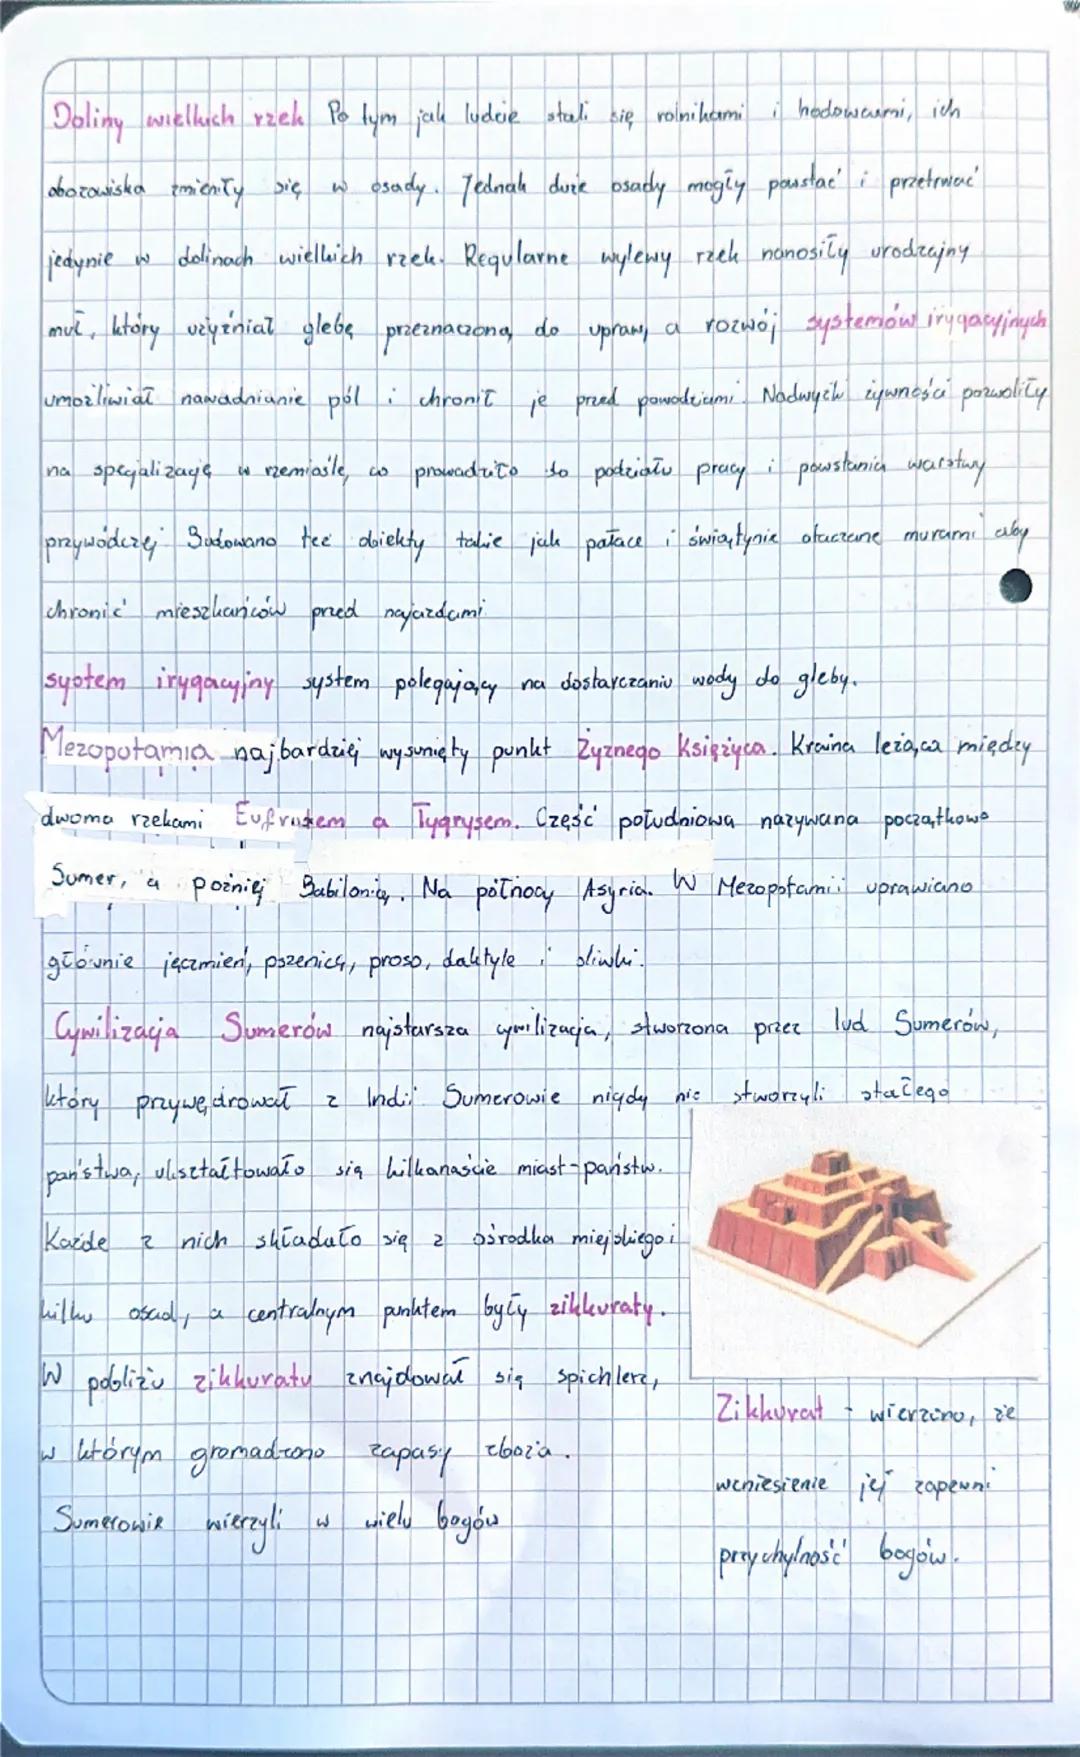 Doliny wielkich rzek Po tym jak ludzie stali się rolnikami i hodowcami, ich
obozowiska zmieniły się w osady. Jednak duże osady mogły powstać i przetrwać
jedynie w dolinach wielkich rzek. Regularne wylewy rzek nanosiły urodzajny
muł, który użyźniał glebę przeznaczoną do upraw, a rozwój systemów irygacyjnych
umożliwiał nawadnianie pól i chronił je przed powodziami. Nadwyżki żywności pozwoliły
na specjalizację w rzemiośle, co prowadziło do podziału pracy i powstania warstwy
przywódczej Budowano też obiekty takie jak pałace i świątynie otaczane murami aby
chronić mieszkańców przed najazdami
system irygacyjny system polegający na dostarczaniu wody do gleby.
Mezopotamia najbardziej wysunięty punkt Żyznego Księżyca. Kraina leżąca między
dwoma rzekami Eufratem a Tygrysem. Część południowa nazywana początkowo
Sumer, a poźniej Babilonią. Na północy Asyria. W Mezopotamii uprawiano
głównie jęczmień, pszenicę, proso, daktyle i oliwki.
Cywilizacja Sumerów najstarsza cywilizacja, stworzona przez lud Sumerów,
który przywędrował z Indii Sumerowie nigdy nie stworzyli stałego
państwa, ukształtowało się kilkanaście miast-państw.
Każde z nich składało się z ośrodka miejskiego i
kilku osad, a centralnym punktem były zikkuraty.
W pobliżu zikkuratu znajdował się spichlerz,
w którym gromadzono zapasy zboża.
Sumerowie wierzyli w wielu bogów
Zikkurat - wierzono, że
wzniesienie jej zapewni
przychylność bogów.